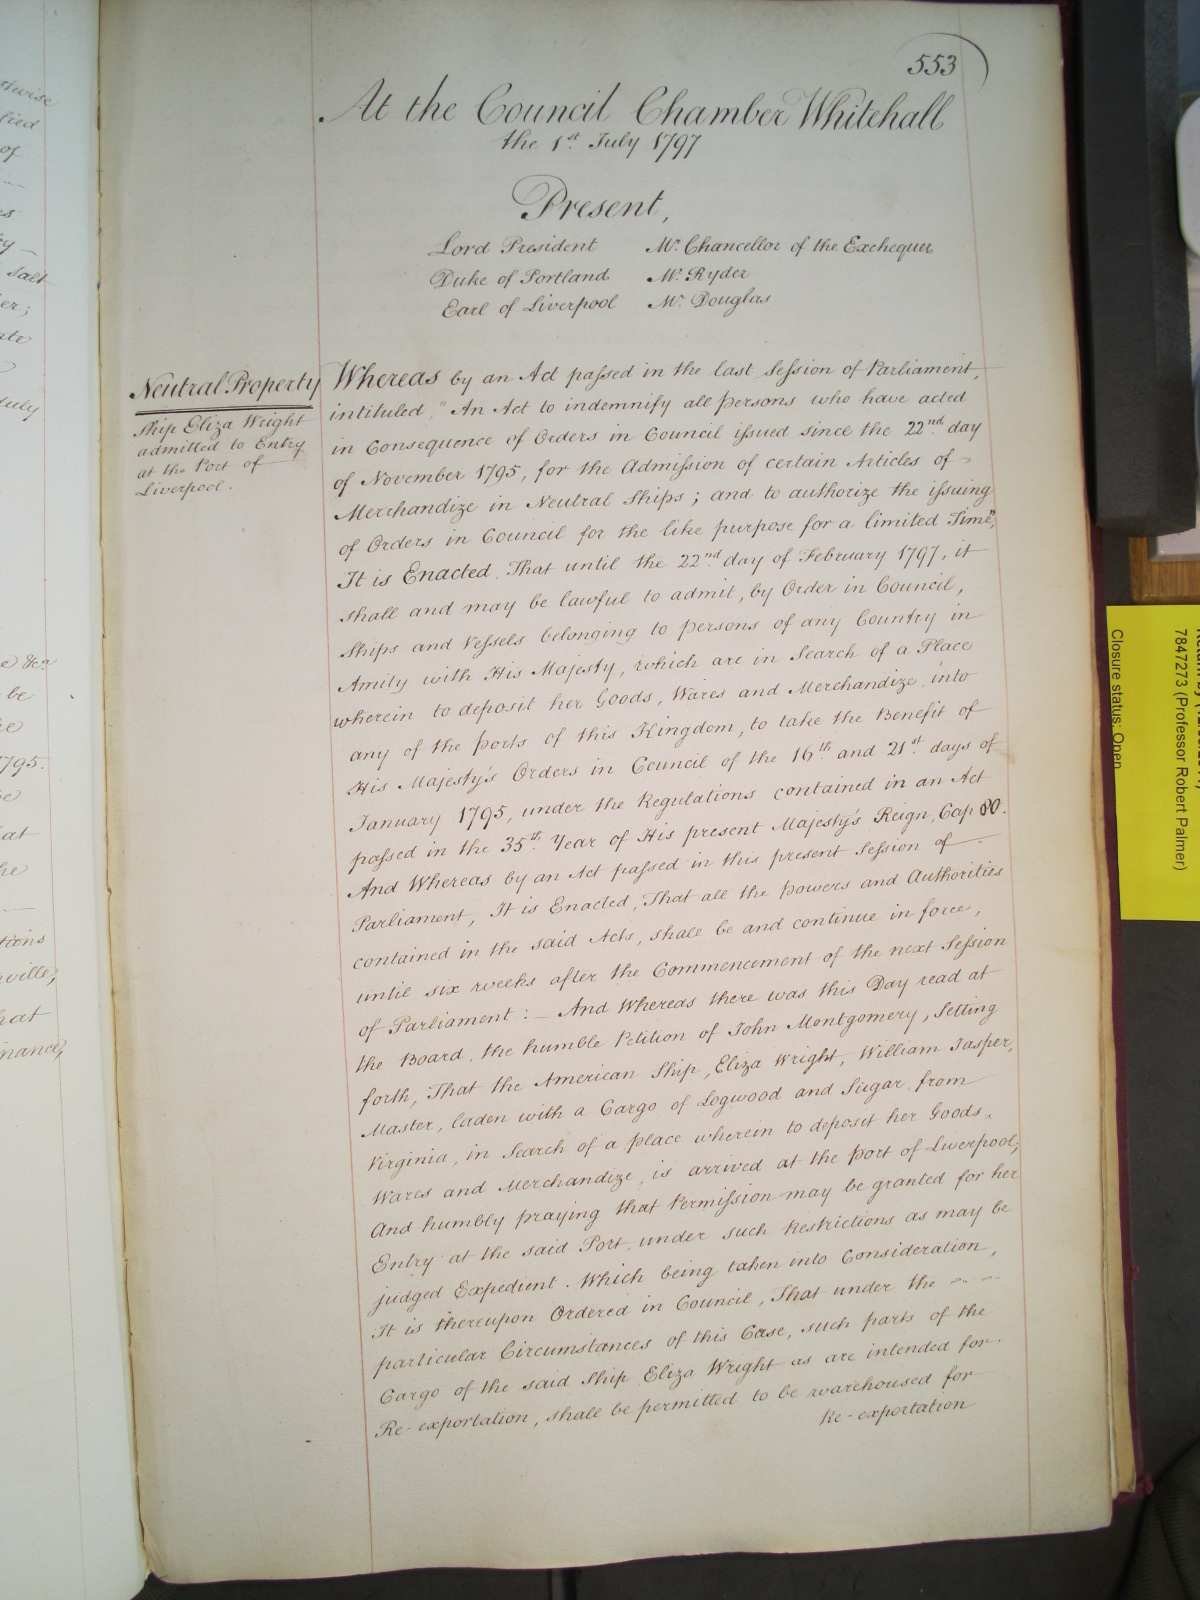 553
At the Council Chamber Whitehall
the 1st July 1797
Present,
Lord President
Duke of Portland
Earl of Liverpool
Mr. Chancellor of the Exchequer
Mr. Ryder
Mr. Douglas
Neutral Property
Ship Eliza Wright
admitted to Entry
at the Port of
Liverpool.
Whereas by an Act passed in the last Session of Parliament,
intituled, "An Act to indemnify all persons who have acted
in Consequence of Orders in Council issued since the 22nd day
of November 1795, for the Admission of certain Articles of
Merchandize in Neutral Ships; and to authorize the issuing
of Orders in Council for the like purpose for a limited Time",
It is Enacted, That until the 22nd day of February 1797, it
shall and may be lawful to admit, by Order in Council,
Ships and Vessels belonging to persons of any Country in
Amity with His Majesty, which are in Search of a Place
wherein to deposit her Goods, Wares and Merchandize, into
any of the ports of this Kingdom, to take the Benefit of
His Majesty's Orders in Council of the 16th and 21st days of
January 1795, under the Regulations contained in an Act
passed in the 35th Year of His present Majesty's Reign, Cap 80.
And Whereas by an Act passed in this present Session of
Parliament, It is Enacted, That all the powers and Authorities
contained in the said Acts, shall be and continue in force,
until six weeks after the Commencement of the next Session
of Parliament: — And Whereas there was this Day read at
the Board, the humble Petition of John Montgomery, Setting
forth, That the American Ship, Eliza Wright, William Jasper,
Master, laden with a Cargo of Logwood and Sugar, from
Virginia, in Search of a place wherein to deposit her Goods,
Wares and Merchandize, is arrived at the port of Liverpool;
And humbly praying that Permission may be granted for her
Entry at the said Port, under such Restrictions as may be
judged Expedient. Which being taken into Consideration,
It is thereupon Ordered in Council, That under the
particular Circumstances of this Case, such parts of the
Cargo of the said Ship Eliza Wright as are intended for
Re-exportation, shall be permitted to be warehoused for
Re-exportation
7847273 (Professor Robert Palmer)
Closure status: Open
salt
July
be
1795.
hat